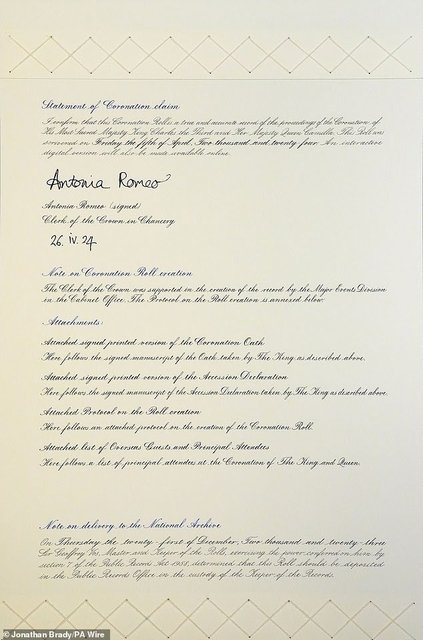 Statement of Coronation claim
I confirm that this Coronation Roll is a true and accurate record of the proceedings of the Coronation of
His Most Sacred Majesty King Charles the Third and Her Majesty Queen Camilla. This Roll was
screened on Friday the fifth of April, Two thousand and twenty four. An interactive
digital version will also be made available online.
Antonia Romeo
Antonia Romeo (signed)
Clerk of the Crown in Chancery
26. iv. 24
Note on Coronation Roll creation
The Clerk of the Crown was supported in the creation of the record by the Major Events Division
in the Cabinet Office. The Protocol on the Roll creation is annexed below.
Attachments:
Attached signed printed version of the Coronation Oath
Here follows the signed manuscript of the Oath taken by The King as described above.
Attached signed printed version of the Accession Declaration
Here follows the signed manuscript of the Accession Declaration taken by The King as described above.
Attached Protocol on the Roll creation
Here follows an attached protocol on the creation of the Coronation Roll.
Attached list of Overseas Guests and Principal Attendees
Here follows a list of principal attendees at the Coronation of The King and Queen.
Note on delivery to the National Archive
On Thursday the twenty-first of December, Two thousand and twenty-three
Sir Geoffrey Vos, Master and Keeper of the Rolls, exercising the power conferred on him by
section 7 of the Public Records Act 1958, determined that this Roll should be deposited
in the Public Records Office in the custody of the Keeper of the Records.
© Jonathan Brady/PA Wire